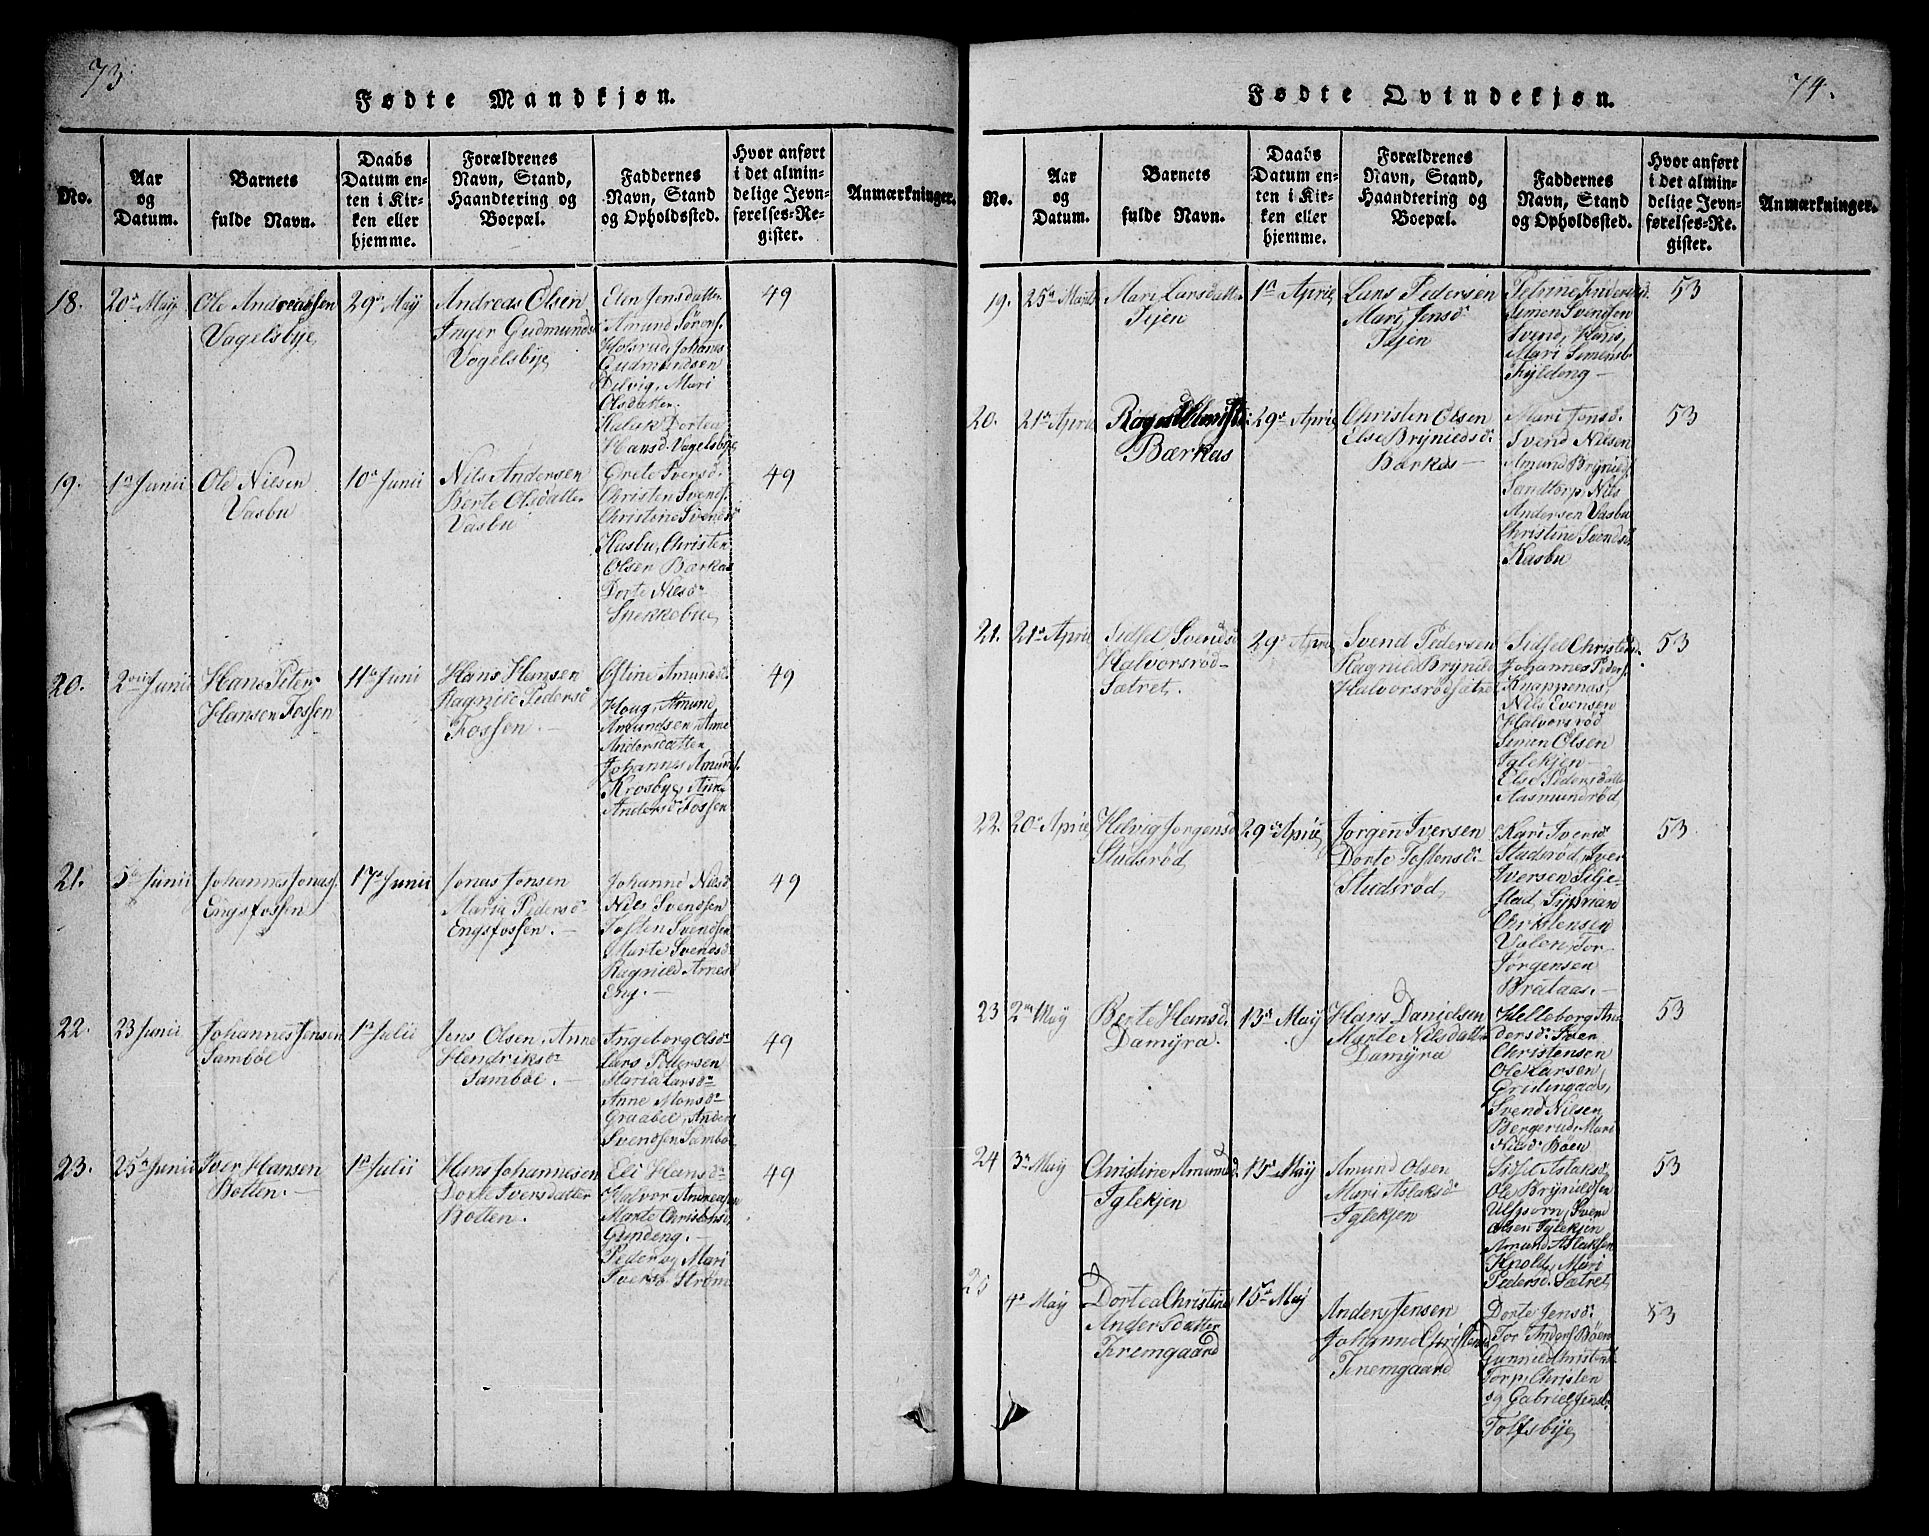 73.
Fødte Mandkjøn.
No.
Aar
og
Datum.
Barnets
fulde Navn.
Daabs
Datum en-
ten i Kir-
ken eller
hjemme.
Forældrenes
Navn, Stand,
Haandtering og
Boepæl.
Faddernes
Navn, Stand
og Opholdssted.
Hvor anført
i det almin-
delige Jevn-
førelses-Re-
gister.
Anmærkninger.
18.
20de May
Ole Andreassen
Vagelsbye
29de May
Andreas Olsen
Inger Gudmunds
Vogelsbye
Elen Jonsdatter
Amund Sørens.
Hofsrud, Johanes
Gudmundsen
Delvig, Mari
Olsdatter
Dortea
Hansd. Vagelsbye
49
19.
1ste Junii
Ole Nielsen
Vasbu
10de Junii
Nils Andersen
Berte Olsdatter
Vasbu
Grete Iversd.
Christen Svends.
Christine Svendsd
Kasbu, Christen
Olsen Bærkas
Dorte Nilsd.
Spekkebye
49
20.
2den Junii
Hans Peter
Hansen Fossen
11te Juni
Hans Hansen
Ragnild Pedersd
Fossen.
Ostine Amundsd.
Houg, Amund
Amundsen, Anne
Andersdatter
Johannes Amunds.
Krosbye, Anne
Andersd. Fossen
49
21.
5te Junii
Johannes Jonas.
Engsfossen
17de Junii
Jonas Jonsen
Maria Pedersd
Engsfossen.
Johanne Nilsd.
Nils Svendsen
Tosten Svendsen
Marte Svendsd
Ragnild Arnesd
Eng.
49
22.
23 Junii
Johannes Jensen
Sambøl
1ste Julii
Jens Olsen, Anne
Hendriksd.
Sambøl.
Ingeborg Olsd.
Lars Pedersen
Maria Larsd.
Anne Monsd.
Graabøl, Anders
Svendsen Sambøl
49
23.
25de Junii
Iver Hansen
Botten.
1ste Julii
Hans Johannesen
Dorte Iversdatter
Botten.
Eli Hansd.
Halvor Andreasen
Marte Christensd.
Grindeng.
Peder og Mari
Iversd. Strøm
49
74.
Fødte Qvindekjøn.
No.
Aar
og
Datum.
Barnets
fulde Navn.
Daabs
Datum en-
ten i Kir-
ken eller
hjemme.
Forældrenes
Navn, Stand,
Haandtering og
Boepæl.
Faddernes
Navn, Stand
og Opholdssted.
Hvor anført
i det almin-
delige Jevn-
førelses-Re-
gister.
Anmærkninger.
19.
25de Marts
Mari Larsdatter
Tejen
1ste April
Lars Pedersen
Mari Jensd.
Tejen
Petrine Andersd.
Simen Svendsen
Svend, Karis,
Mari Simensd
Fyldeng
53
20.
21de April
Bærkas
29de April
Christen Olsen
Else Brynildsd.
Bærkas
Mari Jonsd.
Svend Nilsen
Amund Brynilds
Sandtorp, Nils
Andersen Vasbu
Christine Svendsd.
Kasbu
53
21.
21de April
Sidsel Svendsd
Halvorsrød-
Sætret.
29de April
Svend Pedersen
Ragnild Brynild
Halvorsrødsætre
Sidsel Christensd.
Johannes Peders.
Knappenas
Nils Evensen
Halvorsrød
Simen Olsen
Iglekjen
Else Pedersdatter
Aasmundrød
53
22.
20de April
Helvig Jørgensd
Studsrød
29de April
Jørgen Iversen
Dorte Tostensd.
Studsrød
Kari Iversd.
Studsrød, Iver
Iversen Silje-
stad Syprian
Christensen
Valen, Tor
Jørgensen
Brataas.
53
23
2den May
Berte Hansd.
Damyra.
13de May
Hans Danielsen
Marte Nilsdatter
Damyra
Helleborg An-
dersd. Iver
Christensen
Ole Larsen
Grulengaas,
Svend Nilsen
Bergerud, Mari
Nilsd. Bøen
53
24
3de May
Christine Amundsd.
Iglekjen
13de May
Amund Olsen
Mari Aslaksd.
Iglekjen
Sidsel Aslaksd.
Ole Brynildsen
Ulfsorn, Svend
Olsen Iglekjen
Amund Aslaksen
Knold, Mari
Pedersd. Sætret
53
25
4de May
Dortea Christine
Andersdatter
Kremgaard
15de May
Anders Jensen
Johanne Christensd
Knemgaard
Dorte Jensd.
Tor Anders. Bøen
Gunnild Christensd.
Torp, Christen
og Gabriel Jensd.
Tolfsbye
53